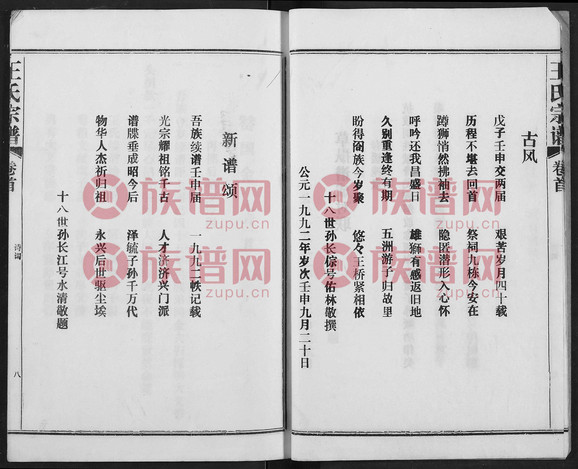 王氏宗谱
卷首
古风
戊子壬申交两届 艰苦岁月四十载
历程不堪去回首 祭祠九栋今安在
蹲狮悄然拂袖去 隐匿潜形入心怀
呼吟还我昌盛日 雄狮有感返旧地
久别重逢终有期 五洲游子归故里
盼得阖族今岁聚 悠悠王桥紧相依
十八世孙长傢号佑林敬撰
公元一九九二年岁次壬申九月二十日
新谱颂
吾族续谱壬申届 一九九二帙记载
光宗耀祖铭千古 人才济济兴门派
谱牒垂成昭今后 泽毓子孙千万代
物华人杰祈归祖 永兴后世驱尘埃
十八世孙长江号水清敬题
王氏宗谱
卷首
诗词
八
族谱网
zupu.cn
族谱网
zupu.cn
族谱网
zupu.cn
族谱网
zupu.cn